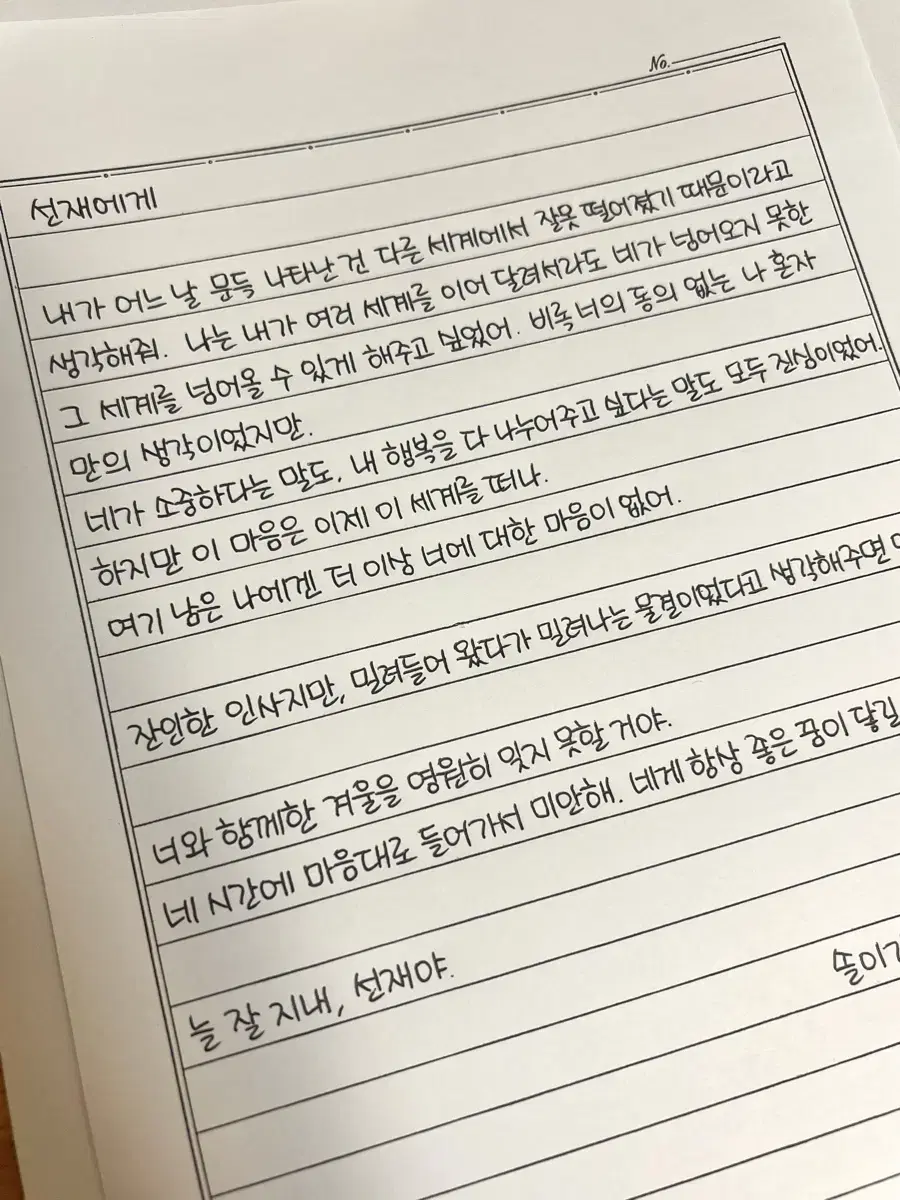 No.
선재에게
내가 어느날 문득 나타난 건 다른 세계에서 잘못 떨어졌기 때문이라고
생각해줘. 나는 내가 여러 세계를 이어 달려서라도 네가 넘어오지 못한
그 세계를 넘어올 수 있게 해주고 싶었어. 비록 너의 동의 없는 나 혼자
만의 생각이었지만.
네가 소중하다는 말도, 내 행복을 다 나누어주고 싶다는 말도 모두 진심이었어.
하지만 이 마음은 이제 이 세계를 떠나.
여기 남은 나에겐 더 이상 너에 대한 마음이 없어.
잔인한 인사지만, 밀려들어 왔다가 밀려나는 물결이었다고 생각해주면
너와 함께한 겨울을 영원히 잊지 못할 거야.
네 시간에 마음대로 들어가서 미안해. 네게 항상 좋은 꿈이 닿길
늘 잘 지내, 선재야.
솔이